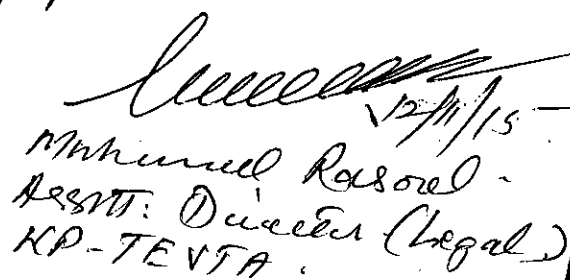 12/11/15
Muhammad Rasool -
Asstt: Director (Legal)
KP-TEVTA.